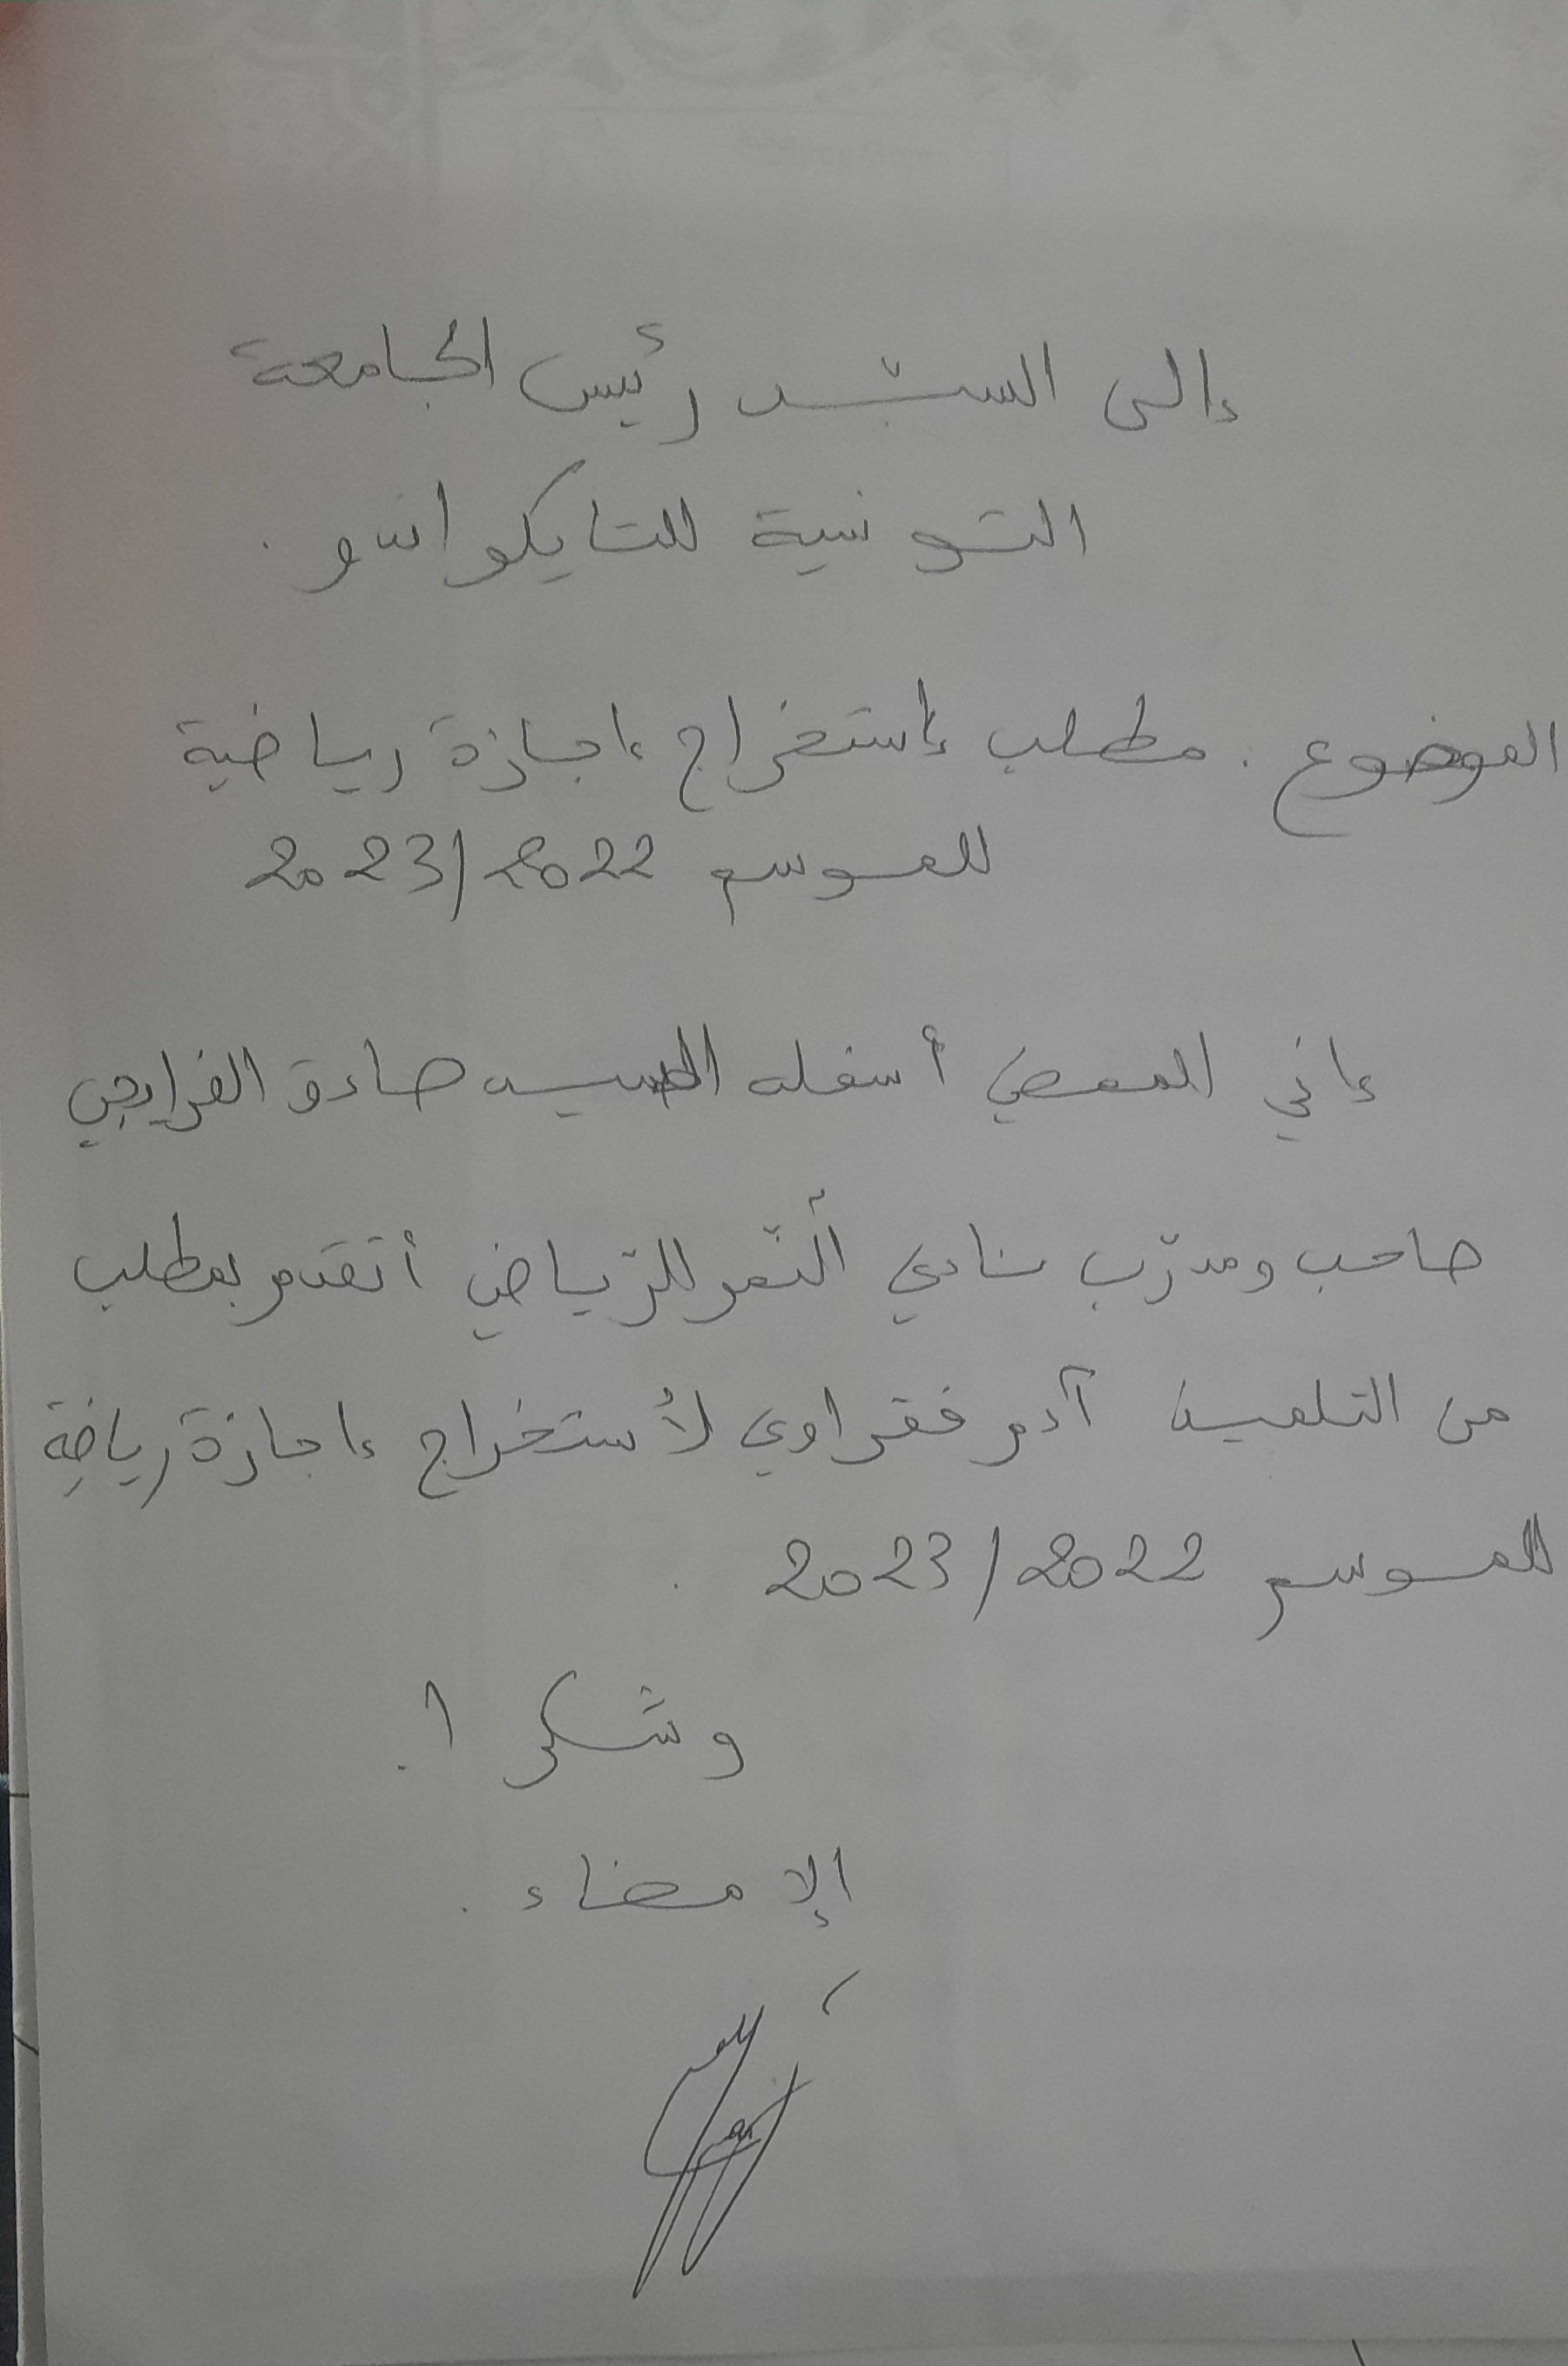 إلى السيّد رئيس الجامعة
التونسية للتايكواندو.
الموضوع: مطلب إستخراج إجازة رياضية
للموسم 2022/2023
إني الممضي أسفله السيد صادق الفرايجي
صاحب ومدرّب نادي ألنّمر للرّياضي أتقدم بمطلب
من التلميذ آدم فقراوي لأستخراج إجازة رياضية
للموسم 2022/2023.
وشكرا.
الإمضاء.